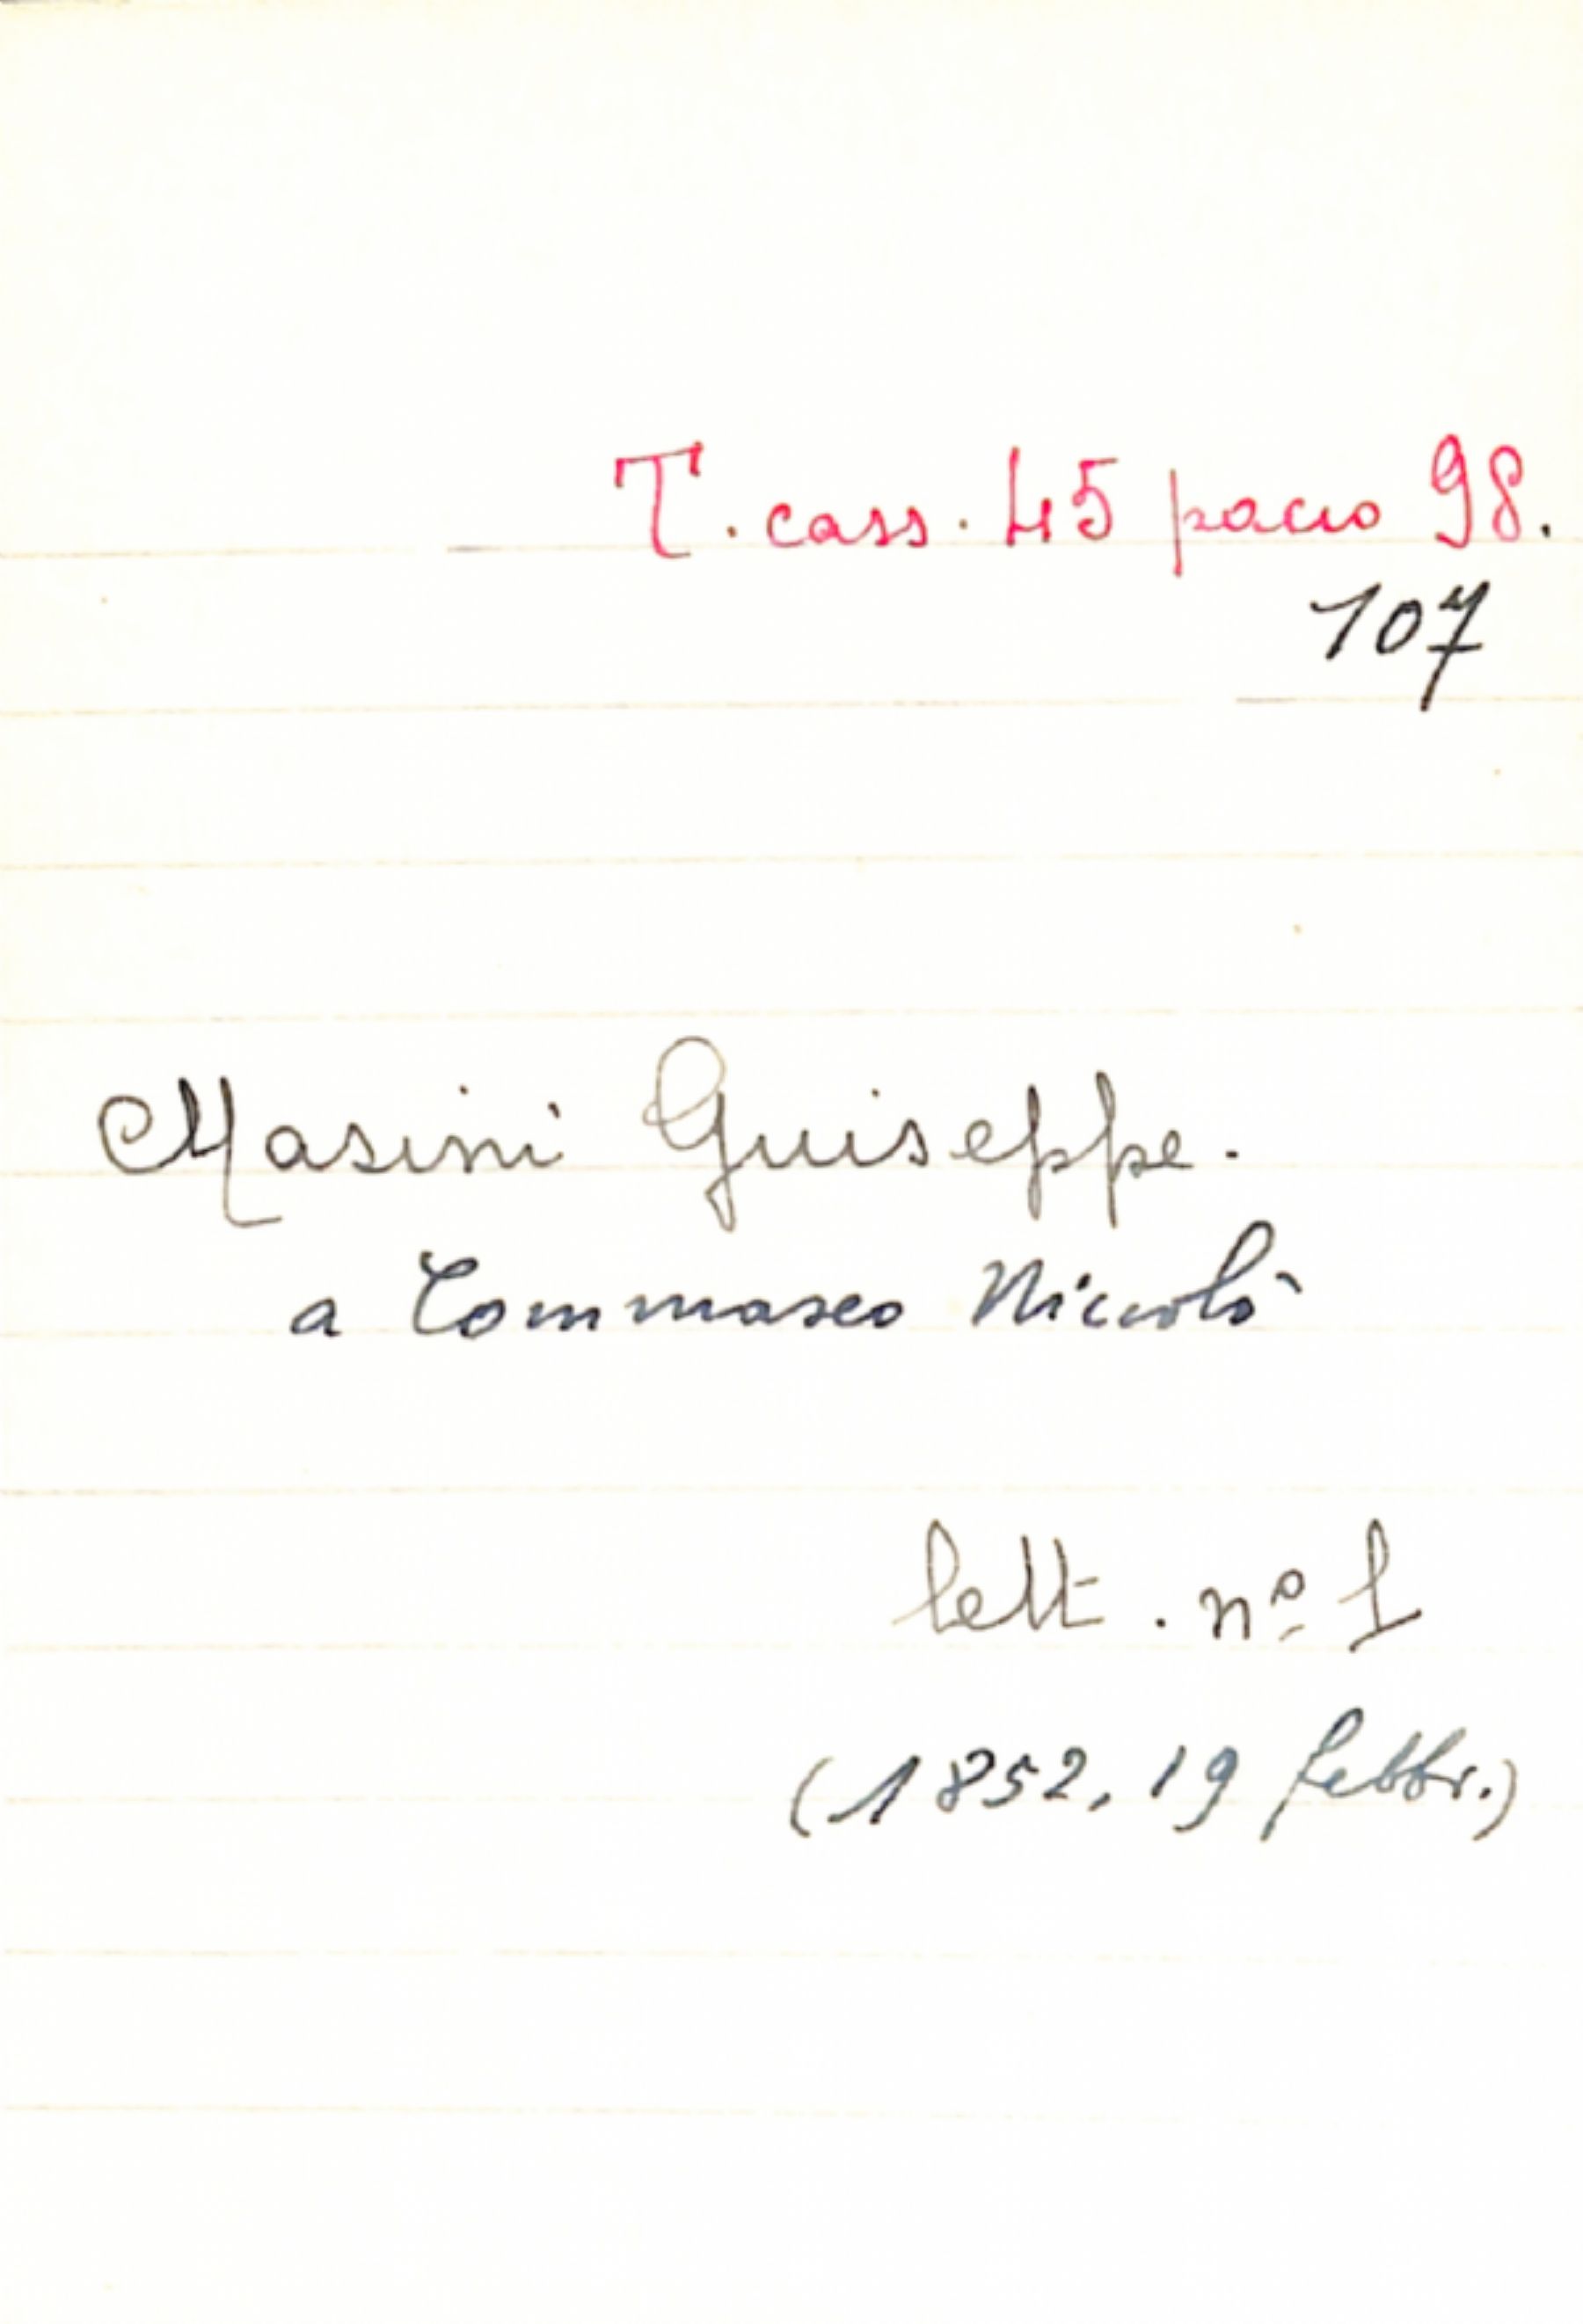 T. cass. 45 pacco 98.
107
Masini Guiseppe.
a Tommaseo Niccolò
lett. nº 1
(1852, 19 febbr.)